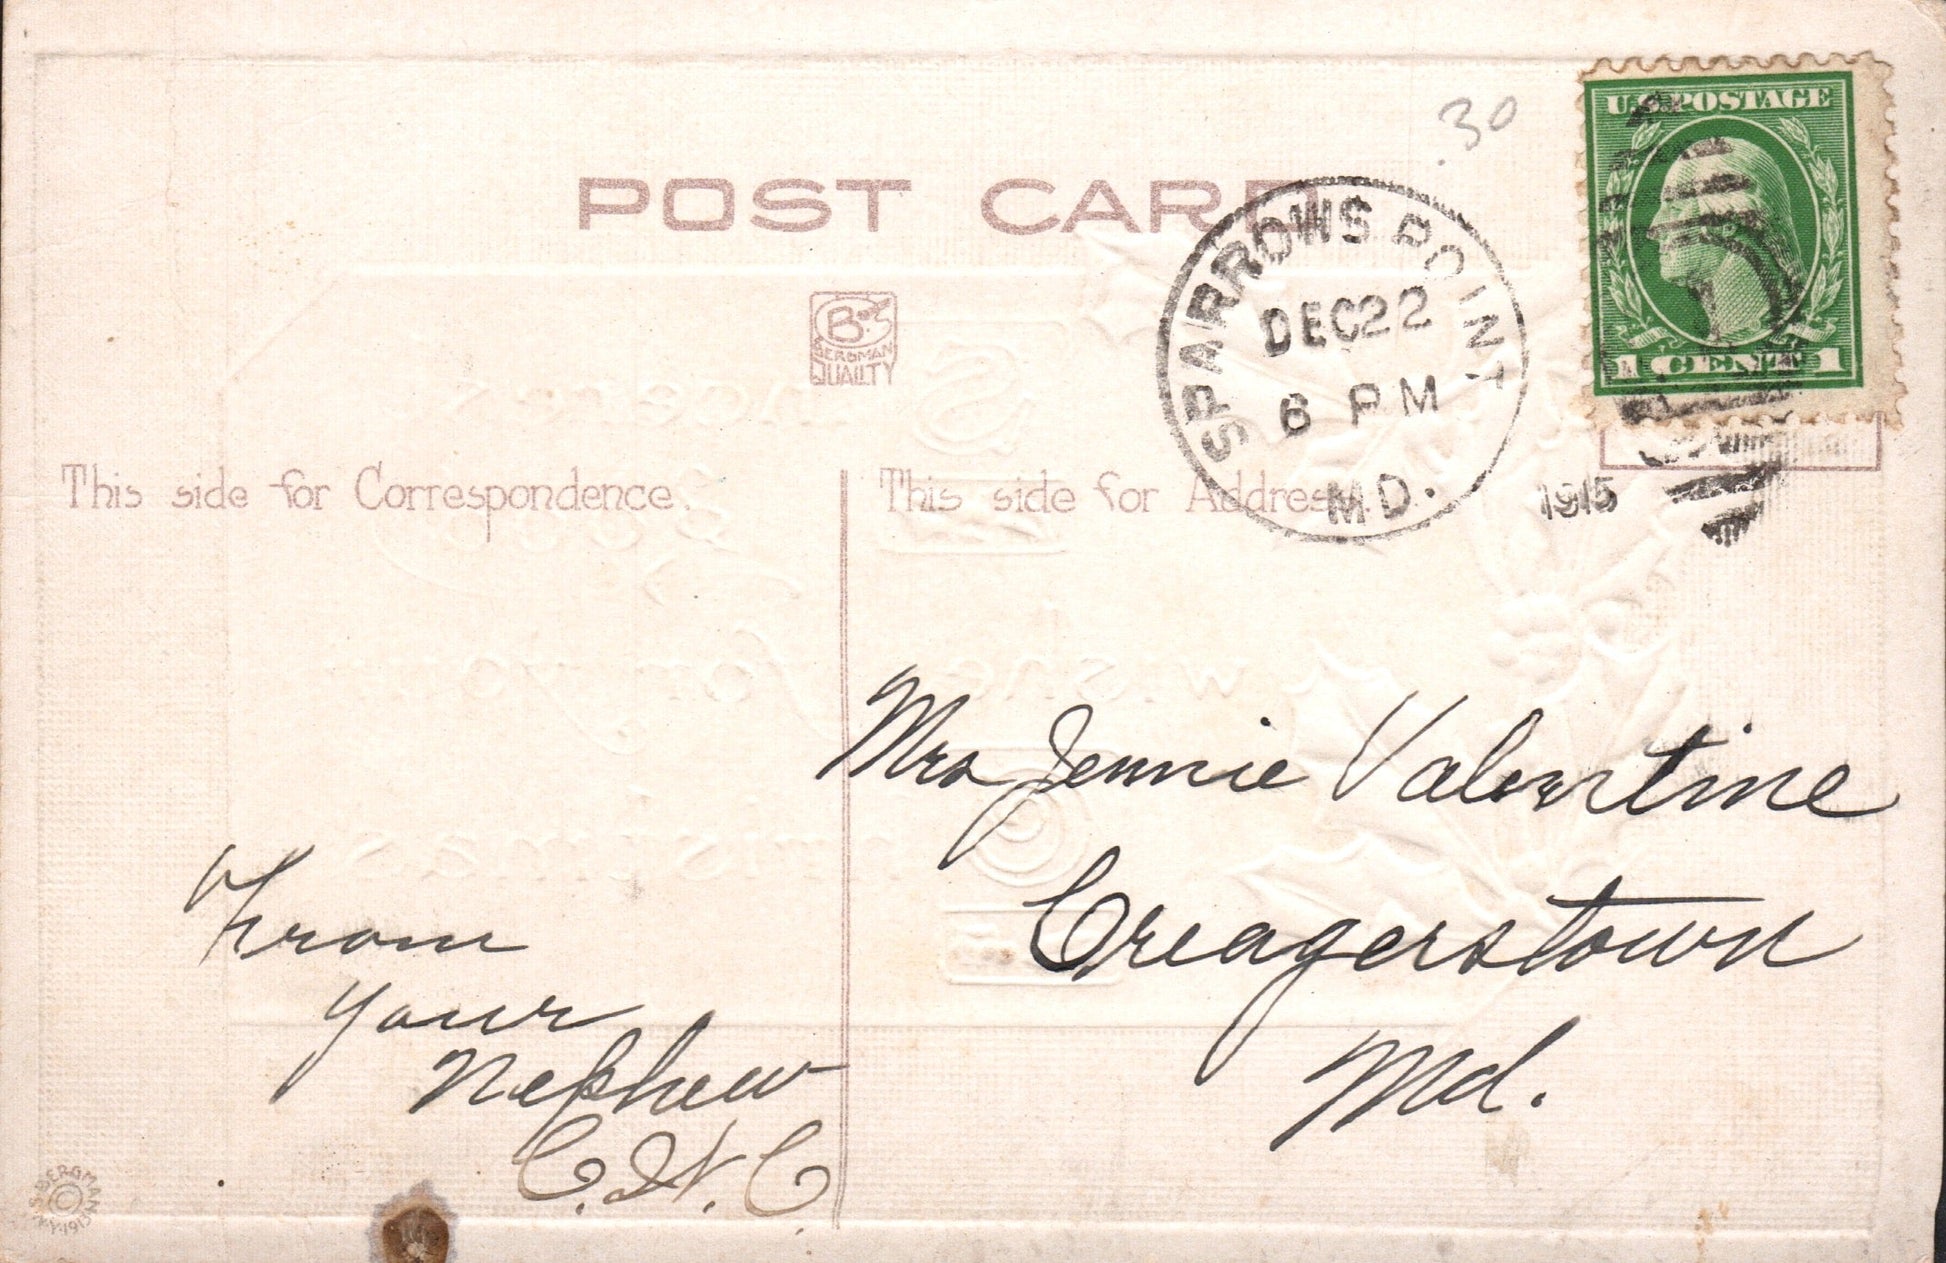 .30
U.S. POSTAGE
1 CENT 1
POST CARD
SPARROWS POINT
DEC 22
6 PM
MD.
1915
B's
BERGMAN
QUALITY
This side for Correspondence.
This side for Address.
Mrs Jennie Valentine
Creagerstown
Md.
From
your
Nephew
C. H. C.
S. BERGMAN
N.Y. 1913